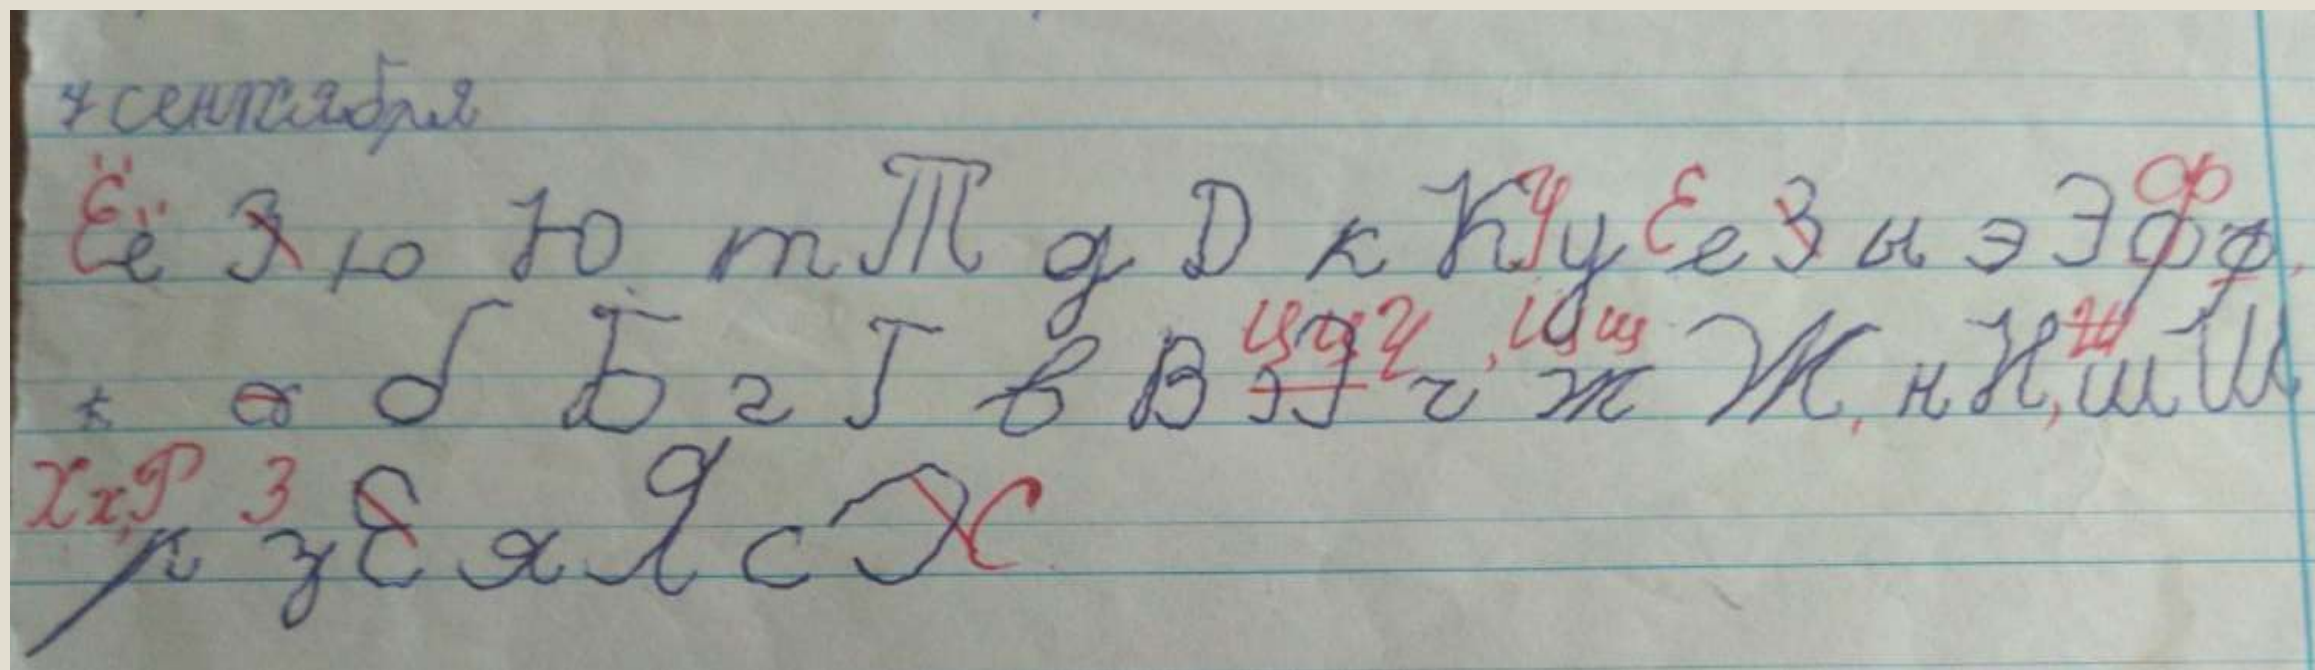 7 сентября
Ё ё З ю Ю т Т д Д к К У у Е е З ы э Э Ф ф
х а б Б г Г в В Ц ц Ч э Э ч , Щ щ ж Ж , н Н , ш Ш
Х х , Р р З з Е я Я с С